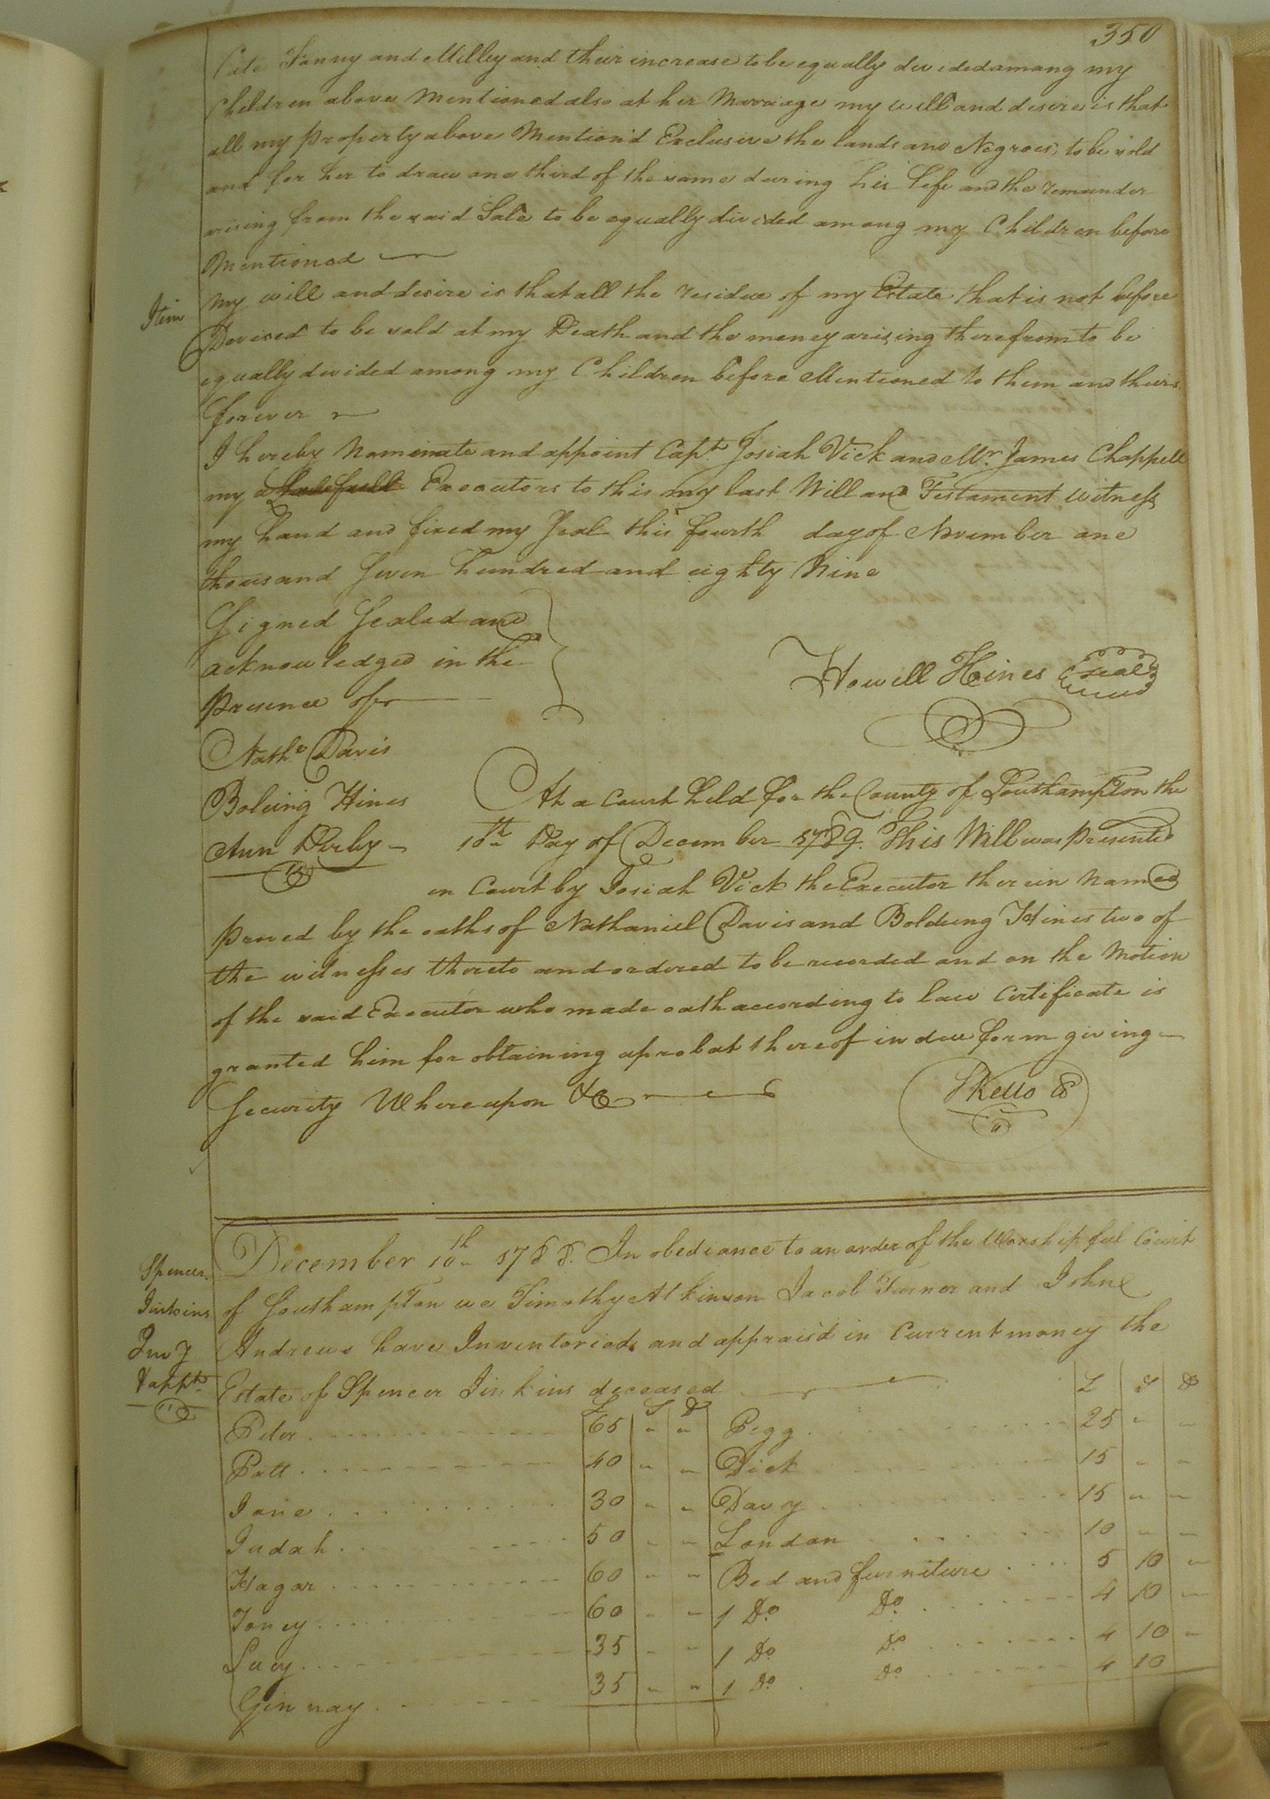 350
Cate Fanny and Milley and their increase to be equally devided amang my
Children above Mentioned also at her Marriage my will and desire is that
all my property above Mention'd Exclusive the lands and Negroes, to be sold
and for her to draw one third of the same during his life and the remainder
arising from the said Sale to be equally divided among my Children before
Mentioned
Item My will and desire is that all the residue of my Estate that is not before
Devised to be sold at my Death and the money arising therefrom to be
equally devided among my Children before Mentioned to them and theirs
forever
I hereby Nominate and appoint Capt. Josiah Vick and Mr. James Chappell
my Executors to this my last Will and Testament witness
my hand and fixed my Seal this fourth day of November one
thousand Seven hundred and eighty Nine
Signed Sealed and
acknowledged in the
Presence of
Howell Hines Seal
Nathl. Davis
Bolding Hines
Ann Derby
At a Court held for the County of Southampton the
10th Day of December 1789. This Will was presented
in Court by Josiah Vick the Executor therein Named
proved by the oaths of Nathaniel Davis and Boldung Hines two of
the witnesses thereto and ordered to be recorded and on the Motion
of the said Executor who made oath according to law Certificate is
granted him for obtaining a probat thereof in due form giving
Security Whereupon &c
SKello CC
Spencer
Jinkins
Inv y
& appt.
December 10th 1788. In obediance to an order of the Worshipful Court
of Southampton we Timothy Atkinson Jacob Turner and John
Andrews have Inventoried and apprais'd in Current money the
Estate of Spencer Jinkins deceased
L S D L S D
Peter 65 " " Pegg 25 " "
Patt 40 " " Dick 15 " "
Jane 30 " " Davy 15 " "
Judah 50 " " London 10 " "
Hagar 60 " " Bed and furniture 5 10 "
Toney 60 " " 1 Do. Do. 4 10 "
Lucy 35 " " 1 Do. Do. 4 10 "
Ginnay 35 " " 1 Do. Do. 4 10